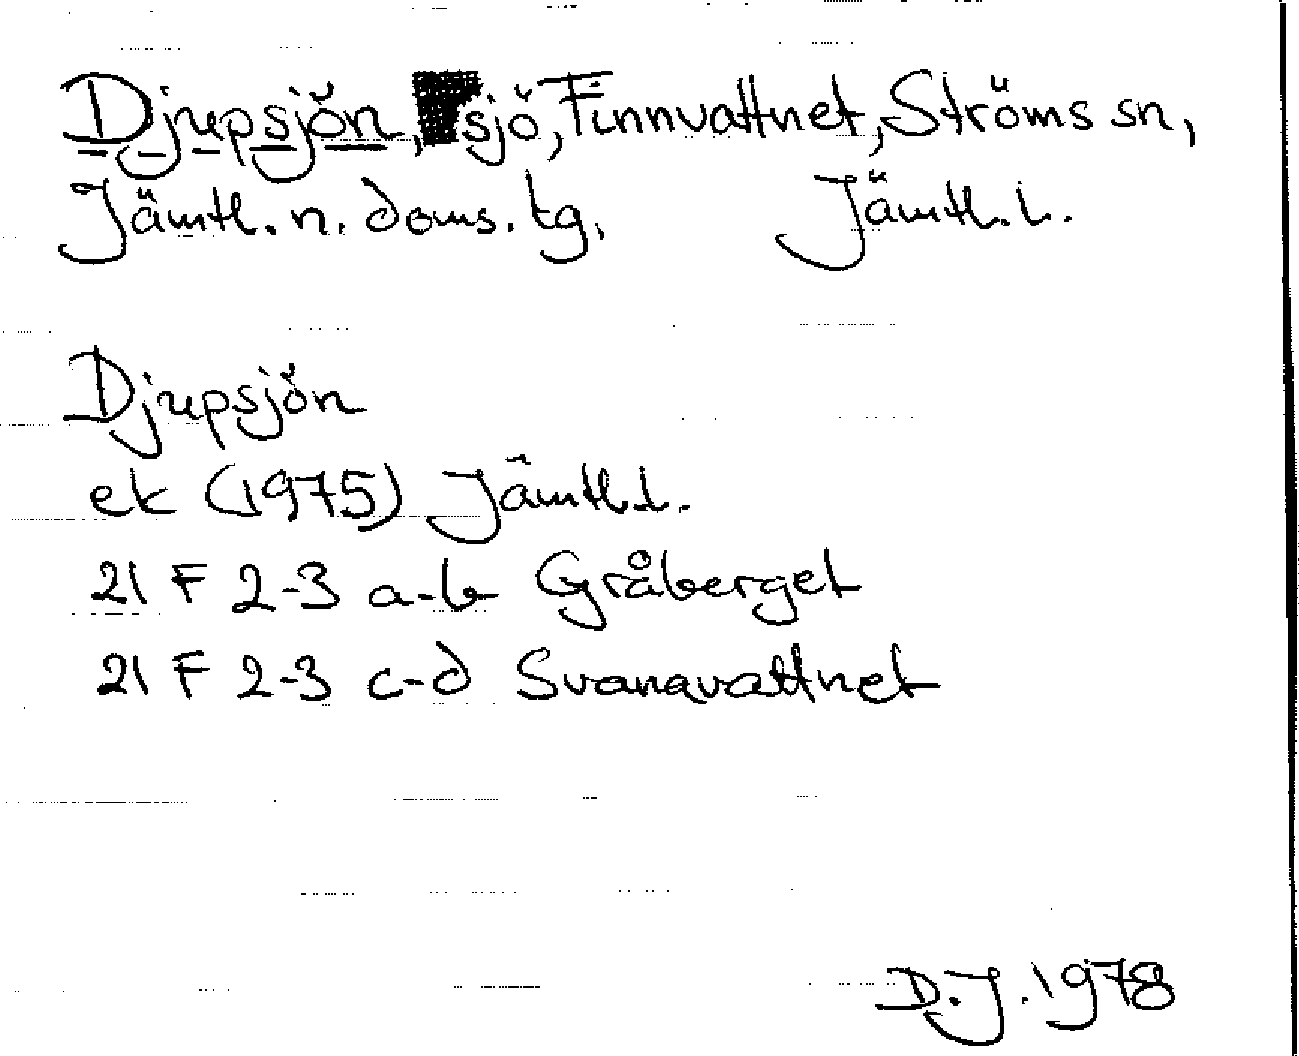 Djupsjön, sjö, Finnvattnet, Ströms sn,
Jämtl. n. doms. tg, Jämtl. l.
Djupsjön
ek (1975) Jämtl. l.
21 F 2-3 a-b Gråberget
21 F 2-3 c-d Svanavattnet
D.J. 1978